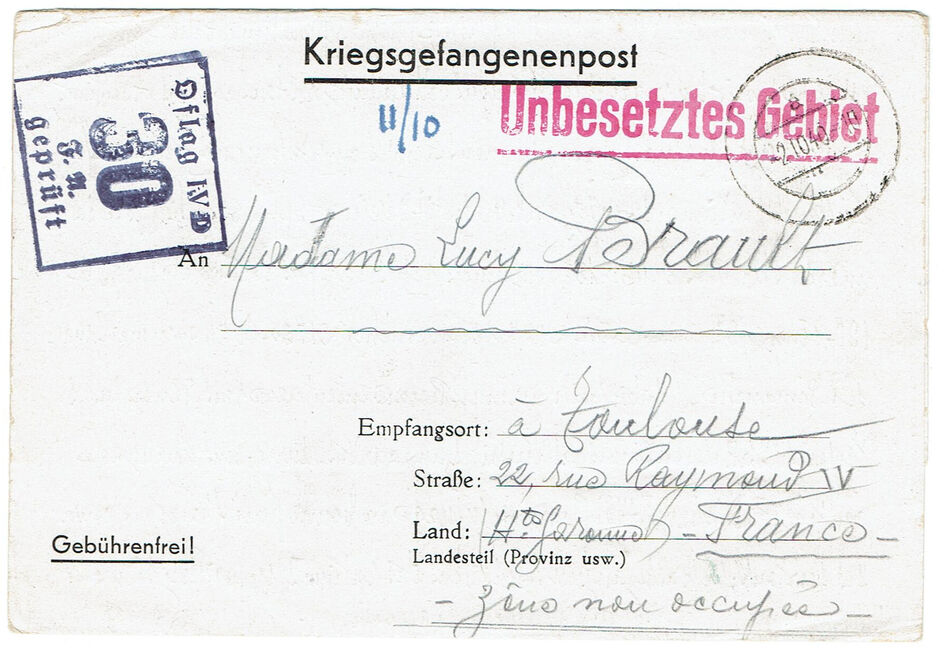 Kriegsgefangenenpost
Unbesetztes Gebiet
11/10
Oflag IV D
30
geprüft
2.10.40
An Madame Lucy Brault
Empfangsort: à Toulouse
Straße: 22, rue Raymond IV
Land: (Hte Garonne) - France -
Landesteil (Provinz usw.)
Gebührenfrei!
- Zône non occupée -